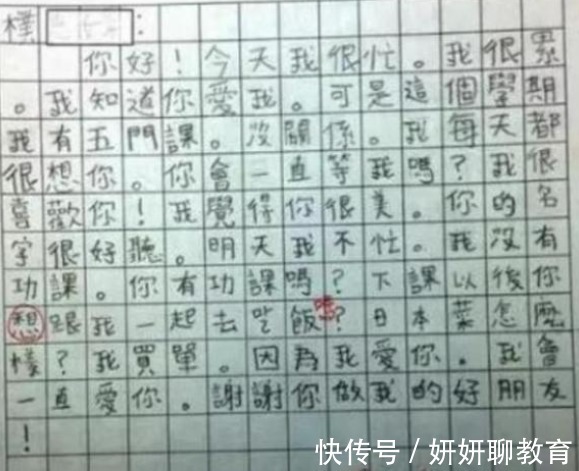 樸:
你好!今天我很忙。我很累
。我知道你愛我。可是這個學期
我有五門課。沒關係。我每天都
很想你。你會一直等我嗎?我很
喜歡你!我覺得你很美。你的名
字很好聽。明天我不忙。我沒有
功課。你有功課嗎?下課以後你
想跟我一起去吃飯嗎?日本菜怎麼
樣?我買單。因為我愛你。我會
一直愛你。謝謝你做我的好朋友
!
快传号/妍妍聊教育